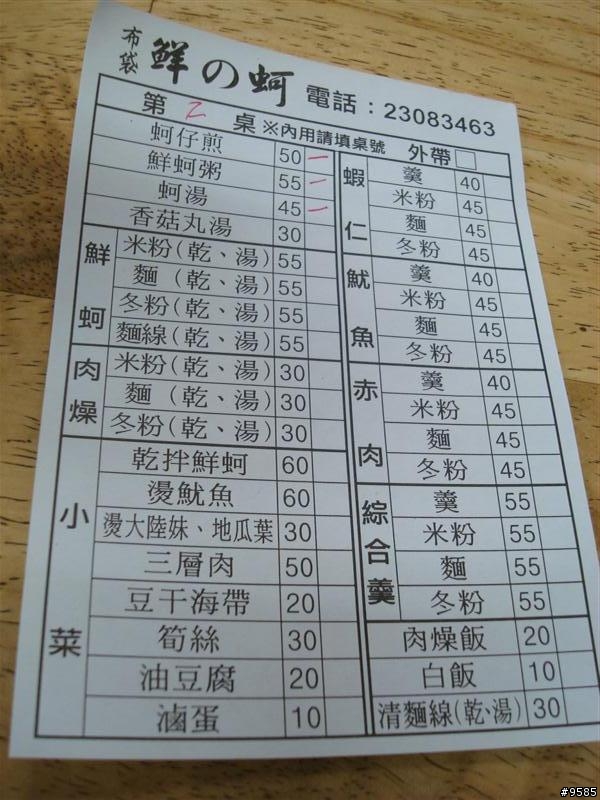 布袋 鮮の蚵 電話：23083463
第 2 桌 ※內用請填桌號 外帶□
蚵仔煎 50 一
鮮蚵粥 55 一
蚵湯 45 一
香菇丸湯 30
鮮蚵
米粉(乾、湯) 55
麵 (乾、湯) 55
冬粉(乾、湯) 55
麵線(乾、湯) 55
肉燥
米粉(乾、湯) 30
麵 (乾、湯) 30
冬粉(乾、湯) 30
小菜
乾拌鮮蚵 60
燙魷魚 60
燙大陸妹、地瓜葉 30
三層肉 50
豆干海帶 20
筍絲 30
油豆腐 20
滷蛋 10
蝦仁
羹 40
米粉 45
麵 45
冬粉 45
魷魚
羹 40
米粉 45
麵 45
冬粉 45
赤肉
羹 40
米粉 45
麵 45
冬粉 45
綜合羹
羹 55
米粉 55
麵 55
冬粉 55
肉燥飯 20
白飯 10
清麵線(乾、湯) 30
#9585